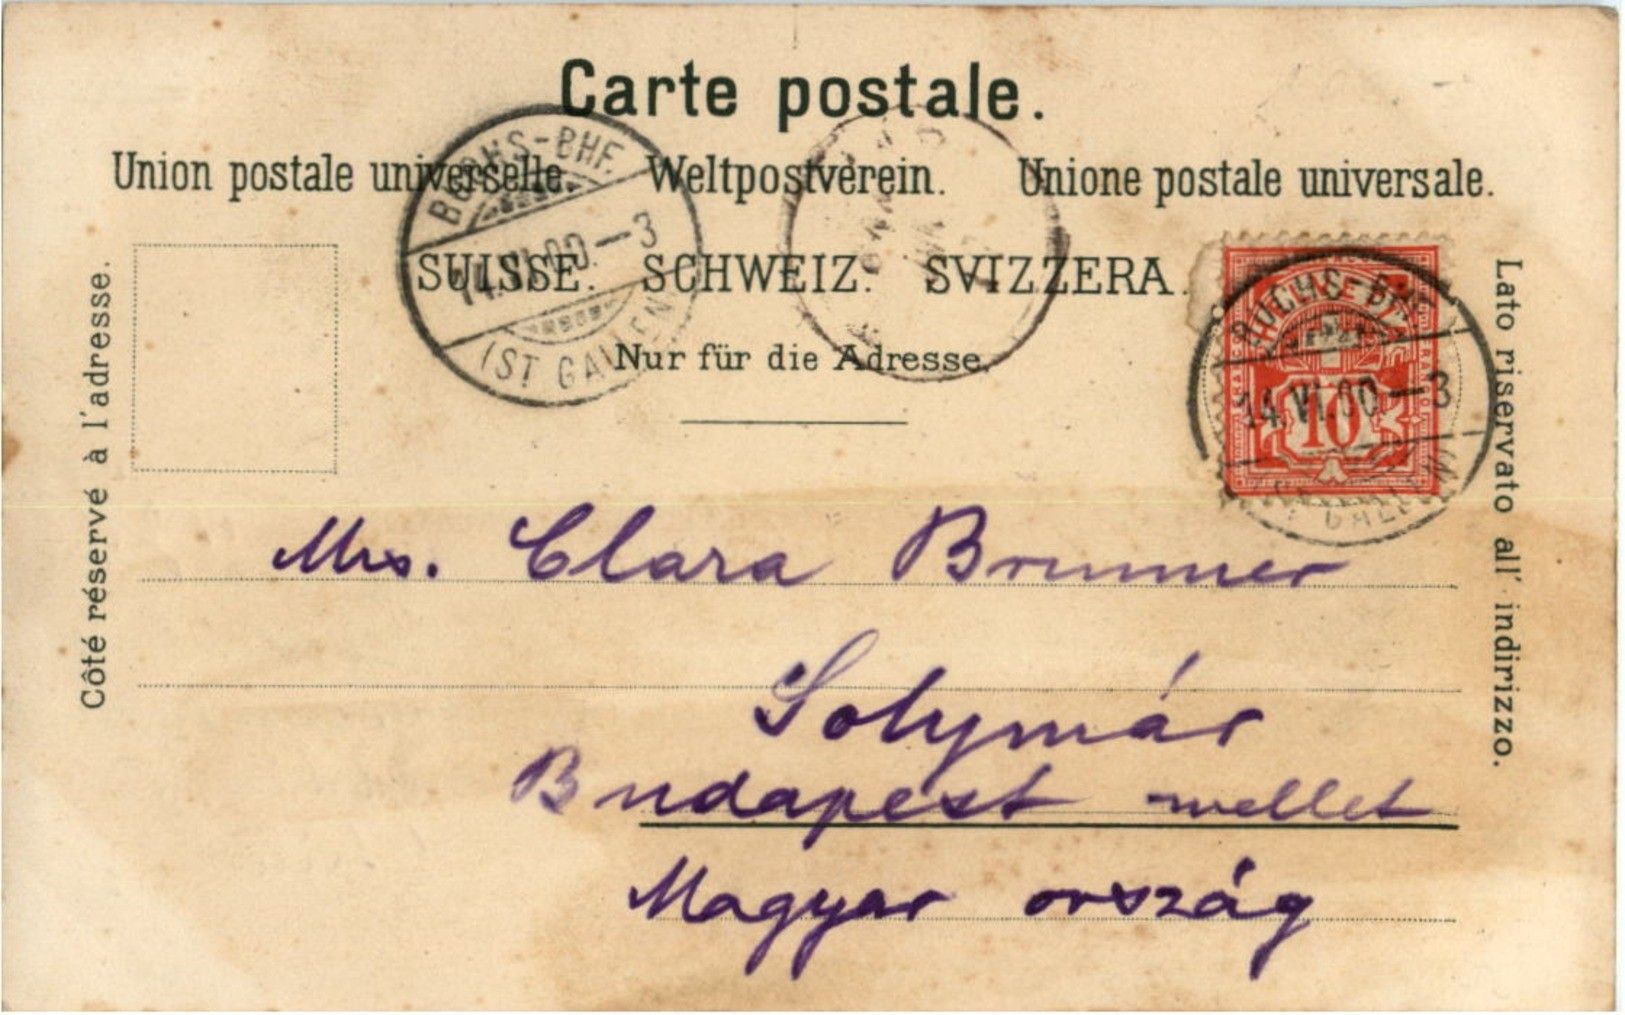 Carte postale.
Union postale universelle. Weltpostverein. Unione postale universale.
SUISSE. SCHWEIZ. SVIZZERA.
Nur für die Adresse.
Côté réservé à l'adresse.
Lato riservato all' indirizzo.
BUCHS-BHF.
14.VI.00.—3
(ST GALLEN)
BUCHS-BHF.
14.VI.00—3
(ST GALLEN)
10
Mrs. Clara Brunner
Solymár
Budapest mellet
Magyar ország